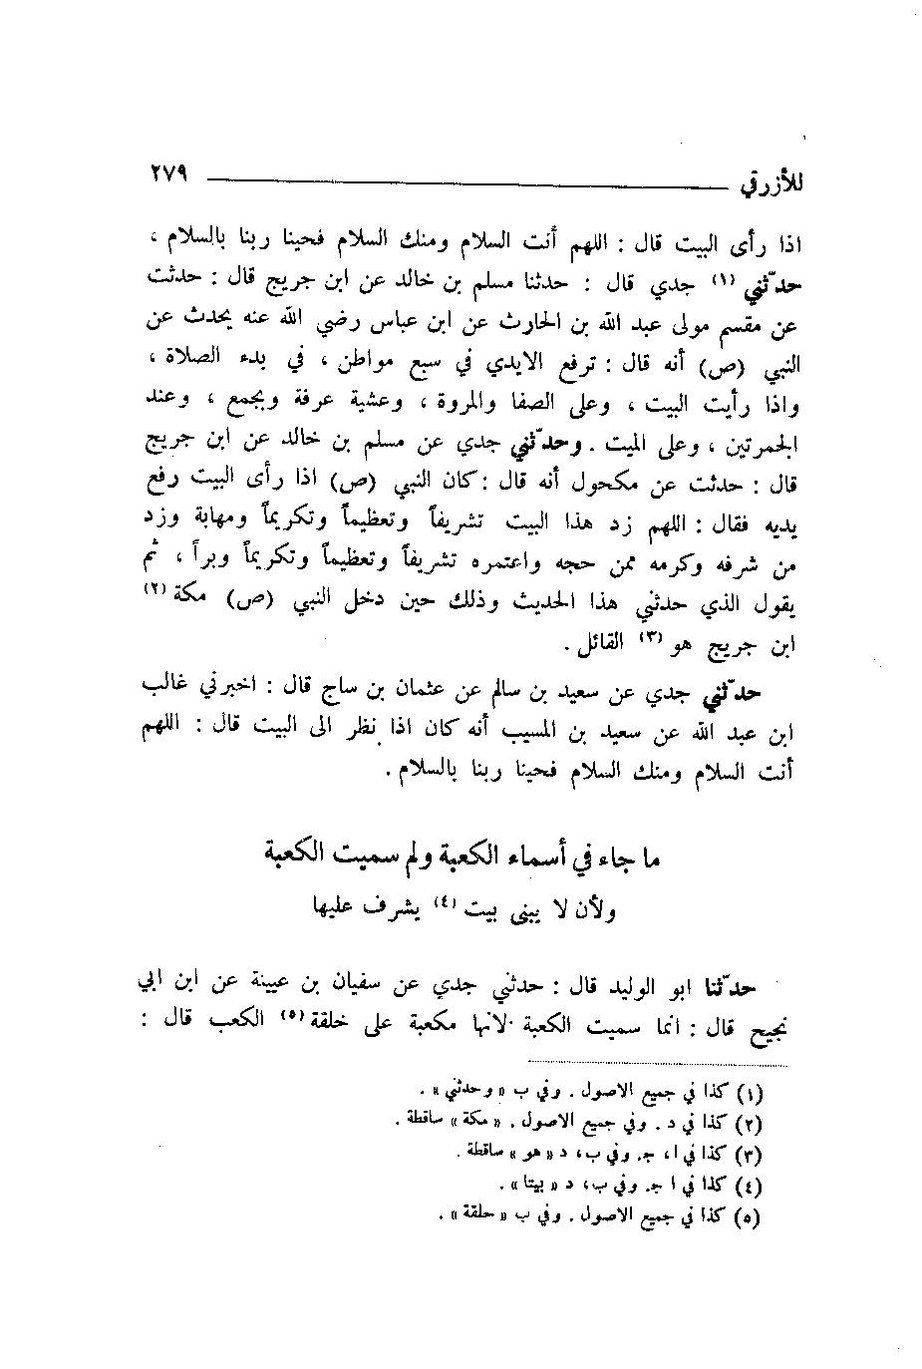 للأزرقي ٢٧٩
اذا رأى البيت قال : اللهم أنت السلام ومنك السلام فحينا ربنا بالسلام ،
حدّثني (١) جدي قال : حدثنا مسلم بن خالد عن ابن جريج قال : حدثت
عن مقسم مولى عبد الله بن الحارث عن ابن عباس رضي الله عنه يحدث عن
النبي (ص) أنه قال : ترفع الايدي في سبع مواطن ، في بدء الصلاة ،
واذا رأيت البيت ، وعلى الصفا والمروة ، وعشية عرفة وبجمع ، وعند
الجمرتين ، وعلى الميت . وحدّثني جدي عن مسلم بن خالد عن ابن جريج
قال : حدثت عن مكحول أنه قال : كان النبي (ص) اذا رأى البيت رفع
يديه فقال : اللهم زد هذا البيت تشريفاً وتعظيماً وتكريماً ومهابة وزد
من شرفه وكرمه ممن حجه واعتمره تشريفاً وتعظيماً وتكريماً وبراً ، ثم
يقول الذي حدثني هذا الحديث وذلك حين دخل النبي (ص) مكة (٢)
ابن جريج هو (٣) القائل .
حدّثني جدي عن سعيد بن سالم عن عثمان بن ساج قال : اخبرني غالب
ابن عبد الله عن سعيد بن المسيب أنه كان اذا نظر الى البيت قال : اللهم
أنت السلام ومنك السلام فحينا ربنا بالسلام .
ما جاء في أسماء الكعبة ولم سميت الكعبة
ولأن لا يبنى بيت (٤) يشرف عليها
حدّثنا ابو الوليد قال : حدثني جدي عن سفيان بن عيينة عن ابن ابي
نجيح قال : انما سميت الكعبة لانها مكعبة على خلقة (٥) الكعب قال :
(١) كذا في جميع الاصول . وفي ب « وحدثني » .
(٢) كذا في د . وفي جميع الاصول . « مكة » ساقطة .
(٣) كذا في ا ، ج . وفي ب ، د « هو » ساقطة .
(٤) كذا في ا ج . وفي ب ، د « بيتا » .
(٥) كذا في جميع الاصول . وفي ب « حلقة » .